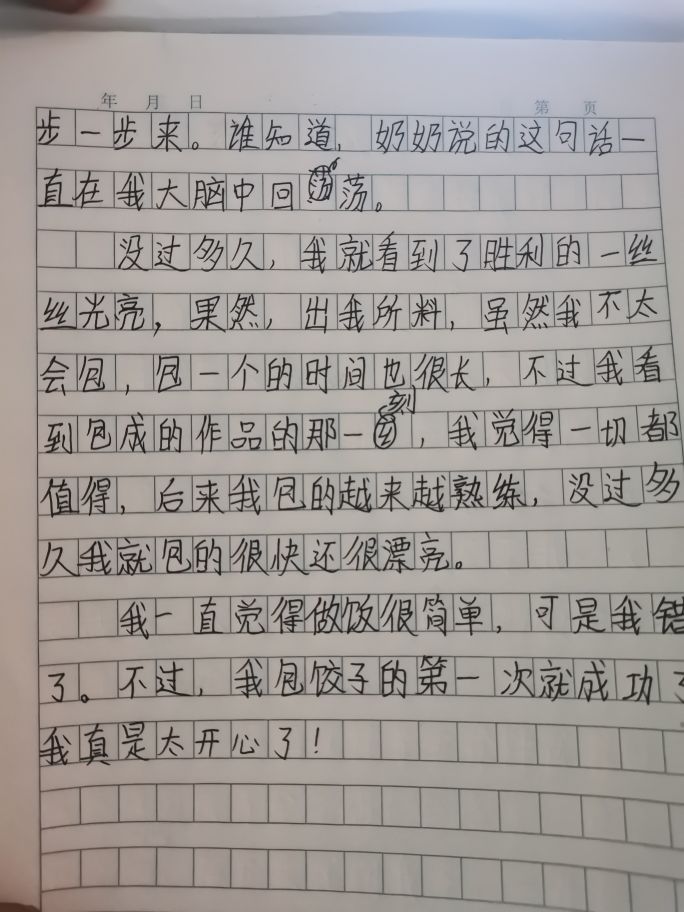 年 月 日 第 页
步一步来。谁知道，奶奶说的这句话一
直在我大脑中回荡。
没过多久，我就看到了胜利的一丝
丝光亮，果然，出我所料，虽然我不太
会包，包一个的时间也很长，不过我看
到包成的作品的那一刻，我觉得一切都
值得，后来我包的越来越熟练，没过多
久我就包的很快还很漂亮。
我一直觉得做饭很简单，可是我错
了。不过，我包饺子的第一次就成功了
我真是太开心了！